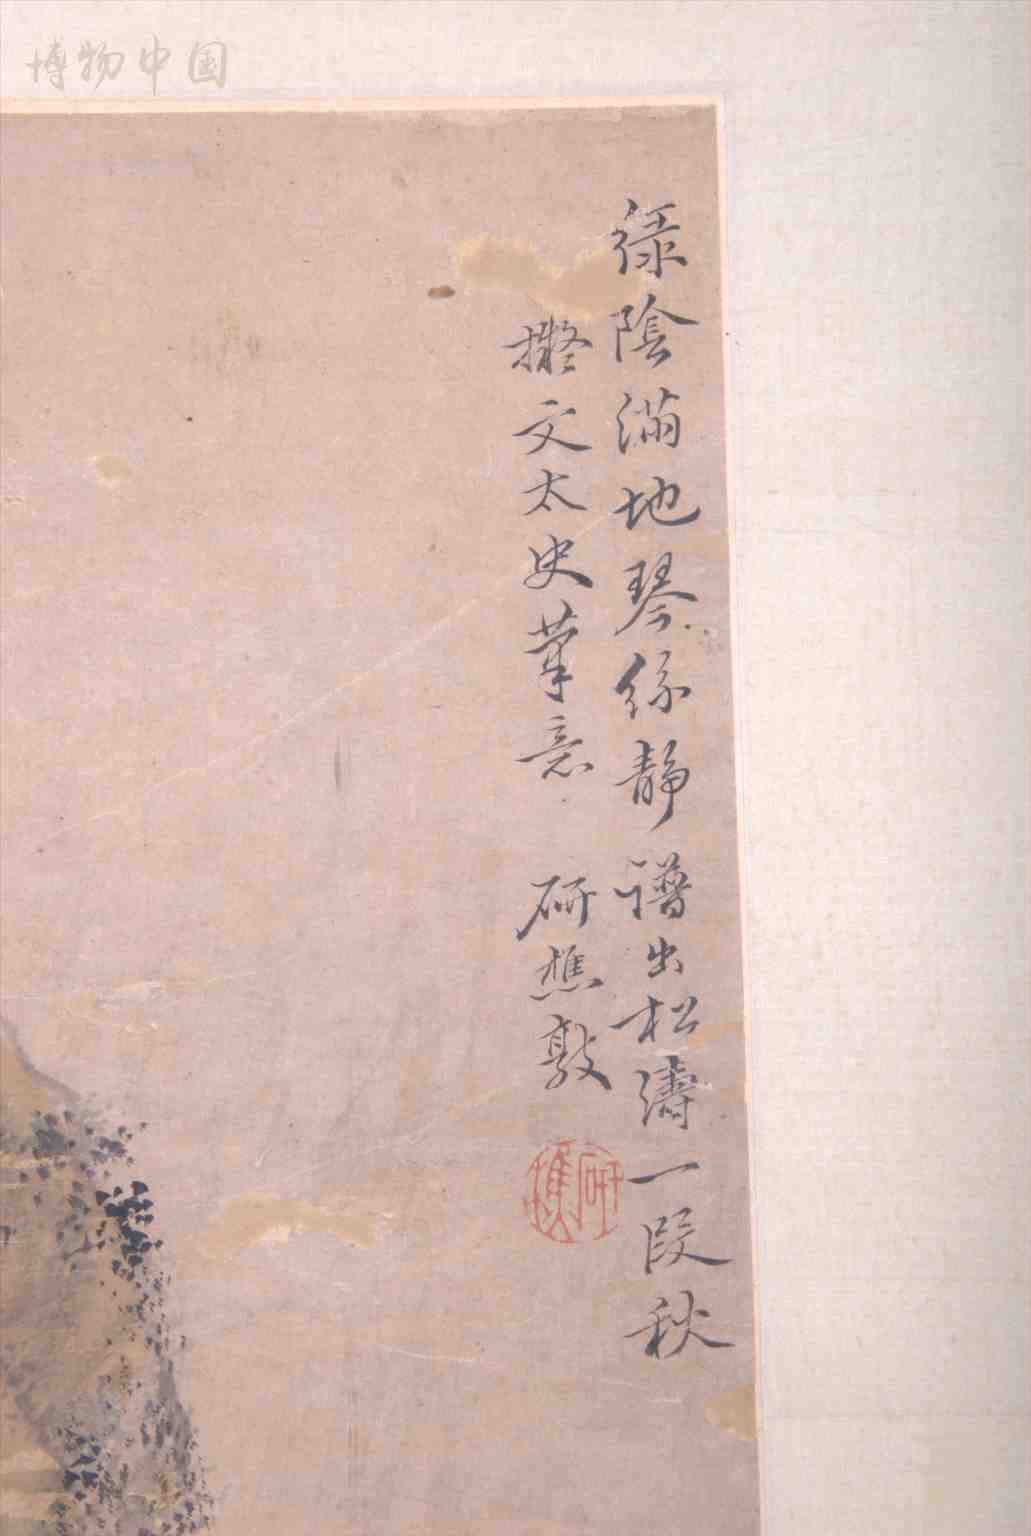 博物中国
緑陰滿地琴絲靜譜出松濤一段秋
擬文太史筆意 研樵敦
研樵